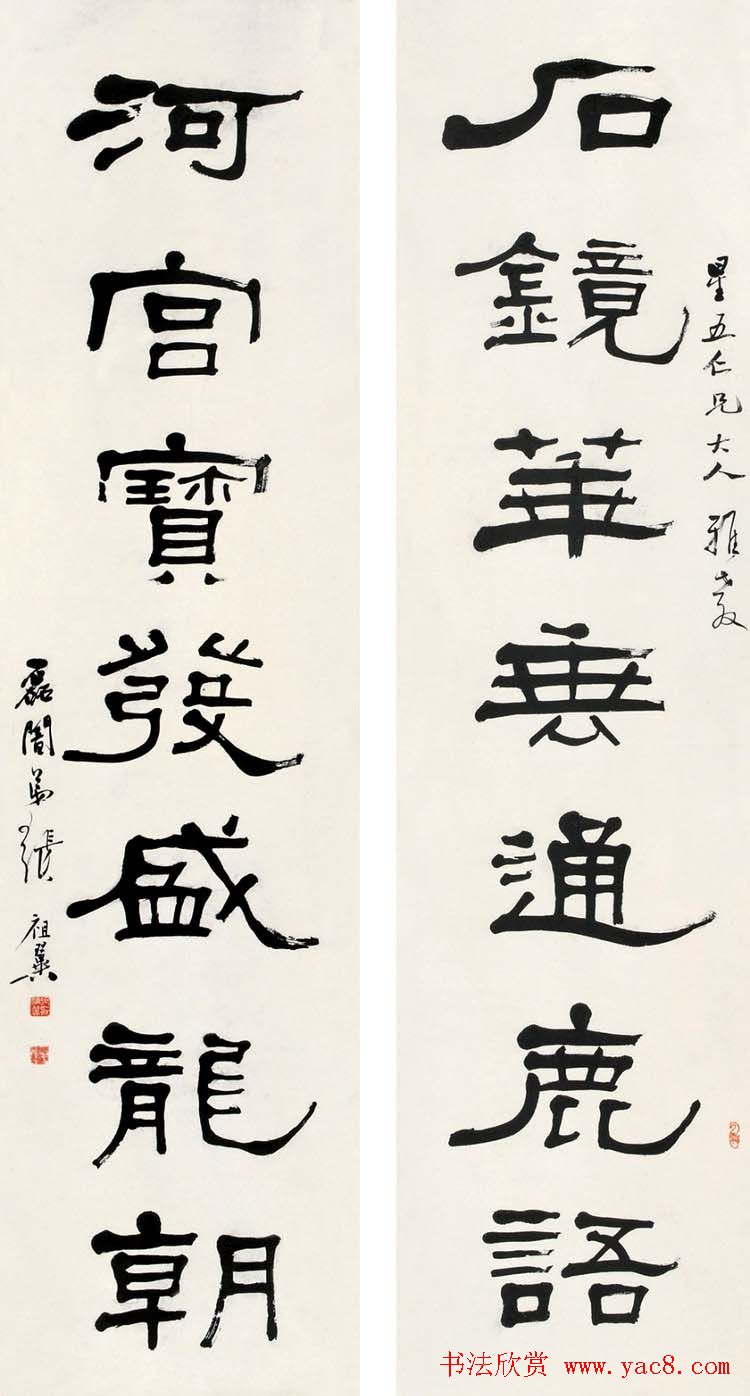 石鏡華垂通鹿語
星五仁兄大人雅教
河宮寶發盛龍朝
磊闇弟張祖翼
书法欣赏 www.yac8.com